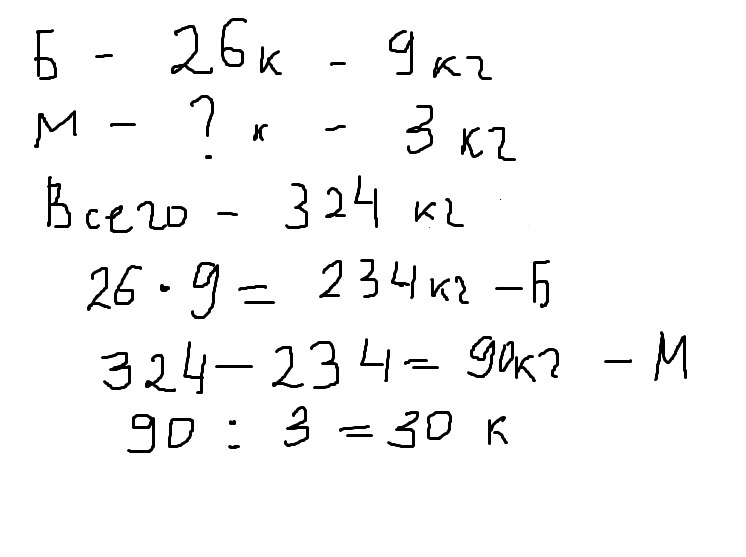 Б - 26к - 9кг
М - ? к - 3 кг
Всего - 324 кг
26 · 9 = 234кг - Б
324 - 234 = 90кг - М
90 : 3 = 30 к